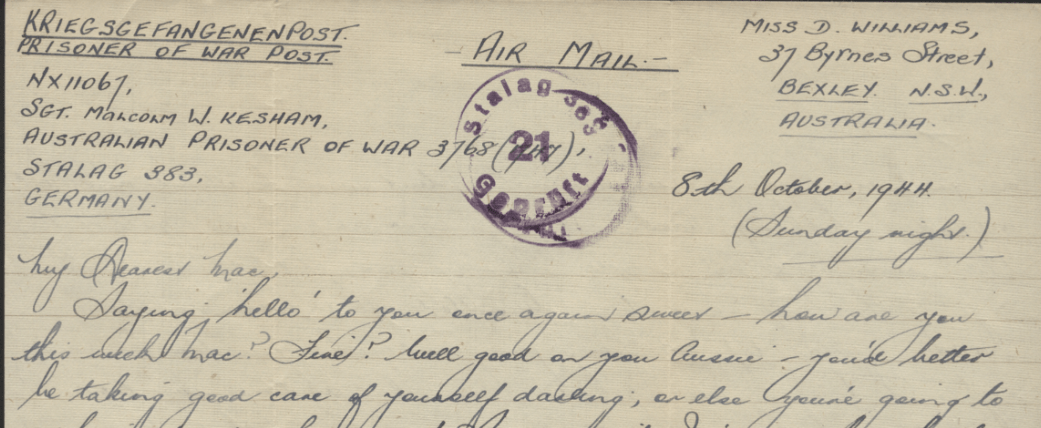 KRIEGSGEFANGENENPOST.
PRISONER OF WAR POST.
- AIR MAIL.-
NX11067,
SGT. MALCOLM W. KESHAM,
AUSTRALIAN PRISONER OF WAR 3768
STALAG 383,
GERMANY.
MISS D. WILLIAMS,
37 Byrnes Street,
BEXLEY. N.S.W.,
AUSTRALIA.
Stalag 383
21
Geprüft
8th October, 1944.
(Sunday night.)
My Dearest Mac,
Saying 'hello' to you once again sweet - how are you
this week Mac? Fine? Well good on you Aussie - you'd better
be taking good care of yourself darling, or else you're going to